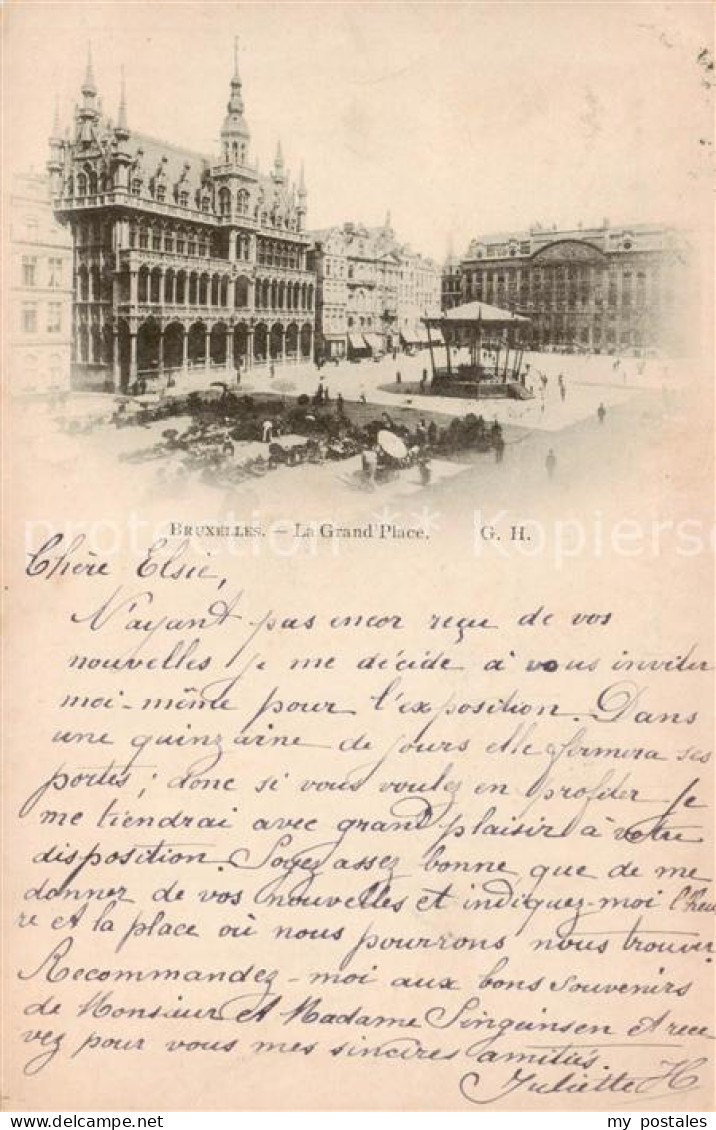 BRUXELLES. – La Grand'Place. G. H.
Chère Elsie,
N'ayant pas encor reçu de vos
nouvelles je me décide à vous inviter
moi-même pour l'exposition. Dans
une quinzaine de jours elle fermera ses
portes ; donc si vous voulez en profiter je
me tiendrai avec grand plaisir à votre
disposition. Soyez assez bonne que de me
donner de vos nouvelles et indiquez-moi l'heu
re et la place où nous pourrons nous trouver
Recommandez-moi aux bons souvenirs
de Monsieur et Madame et rece
vez pour vous mes sincires amitiés.
Juliette H
protectionpiclens © Copierschutz
www.ansichtskartenversand.com
my_postales